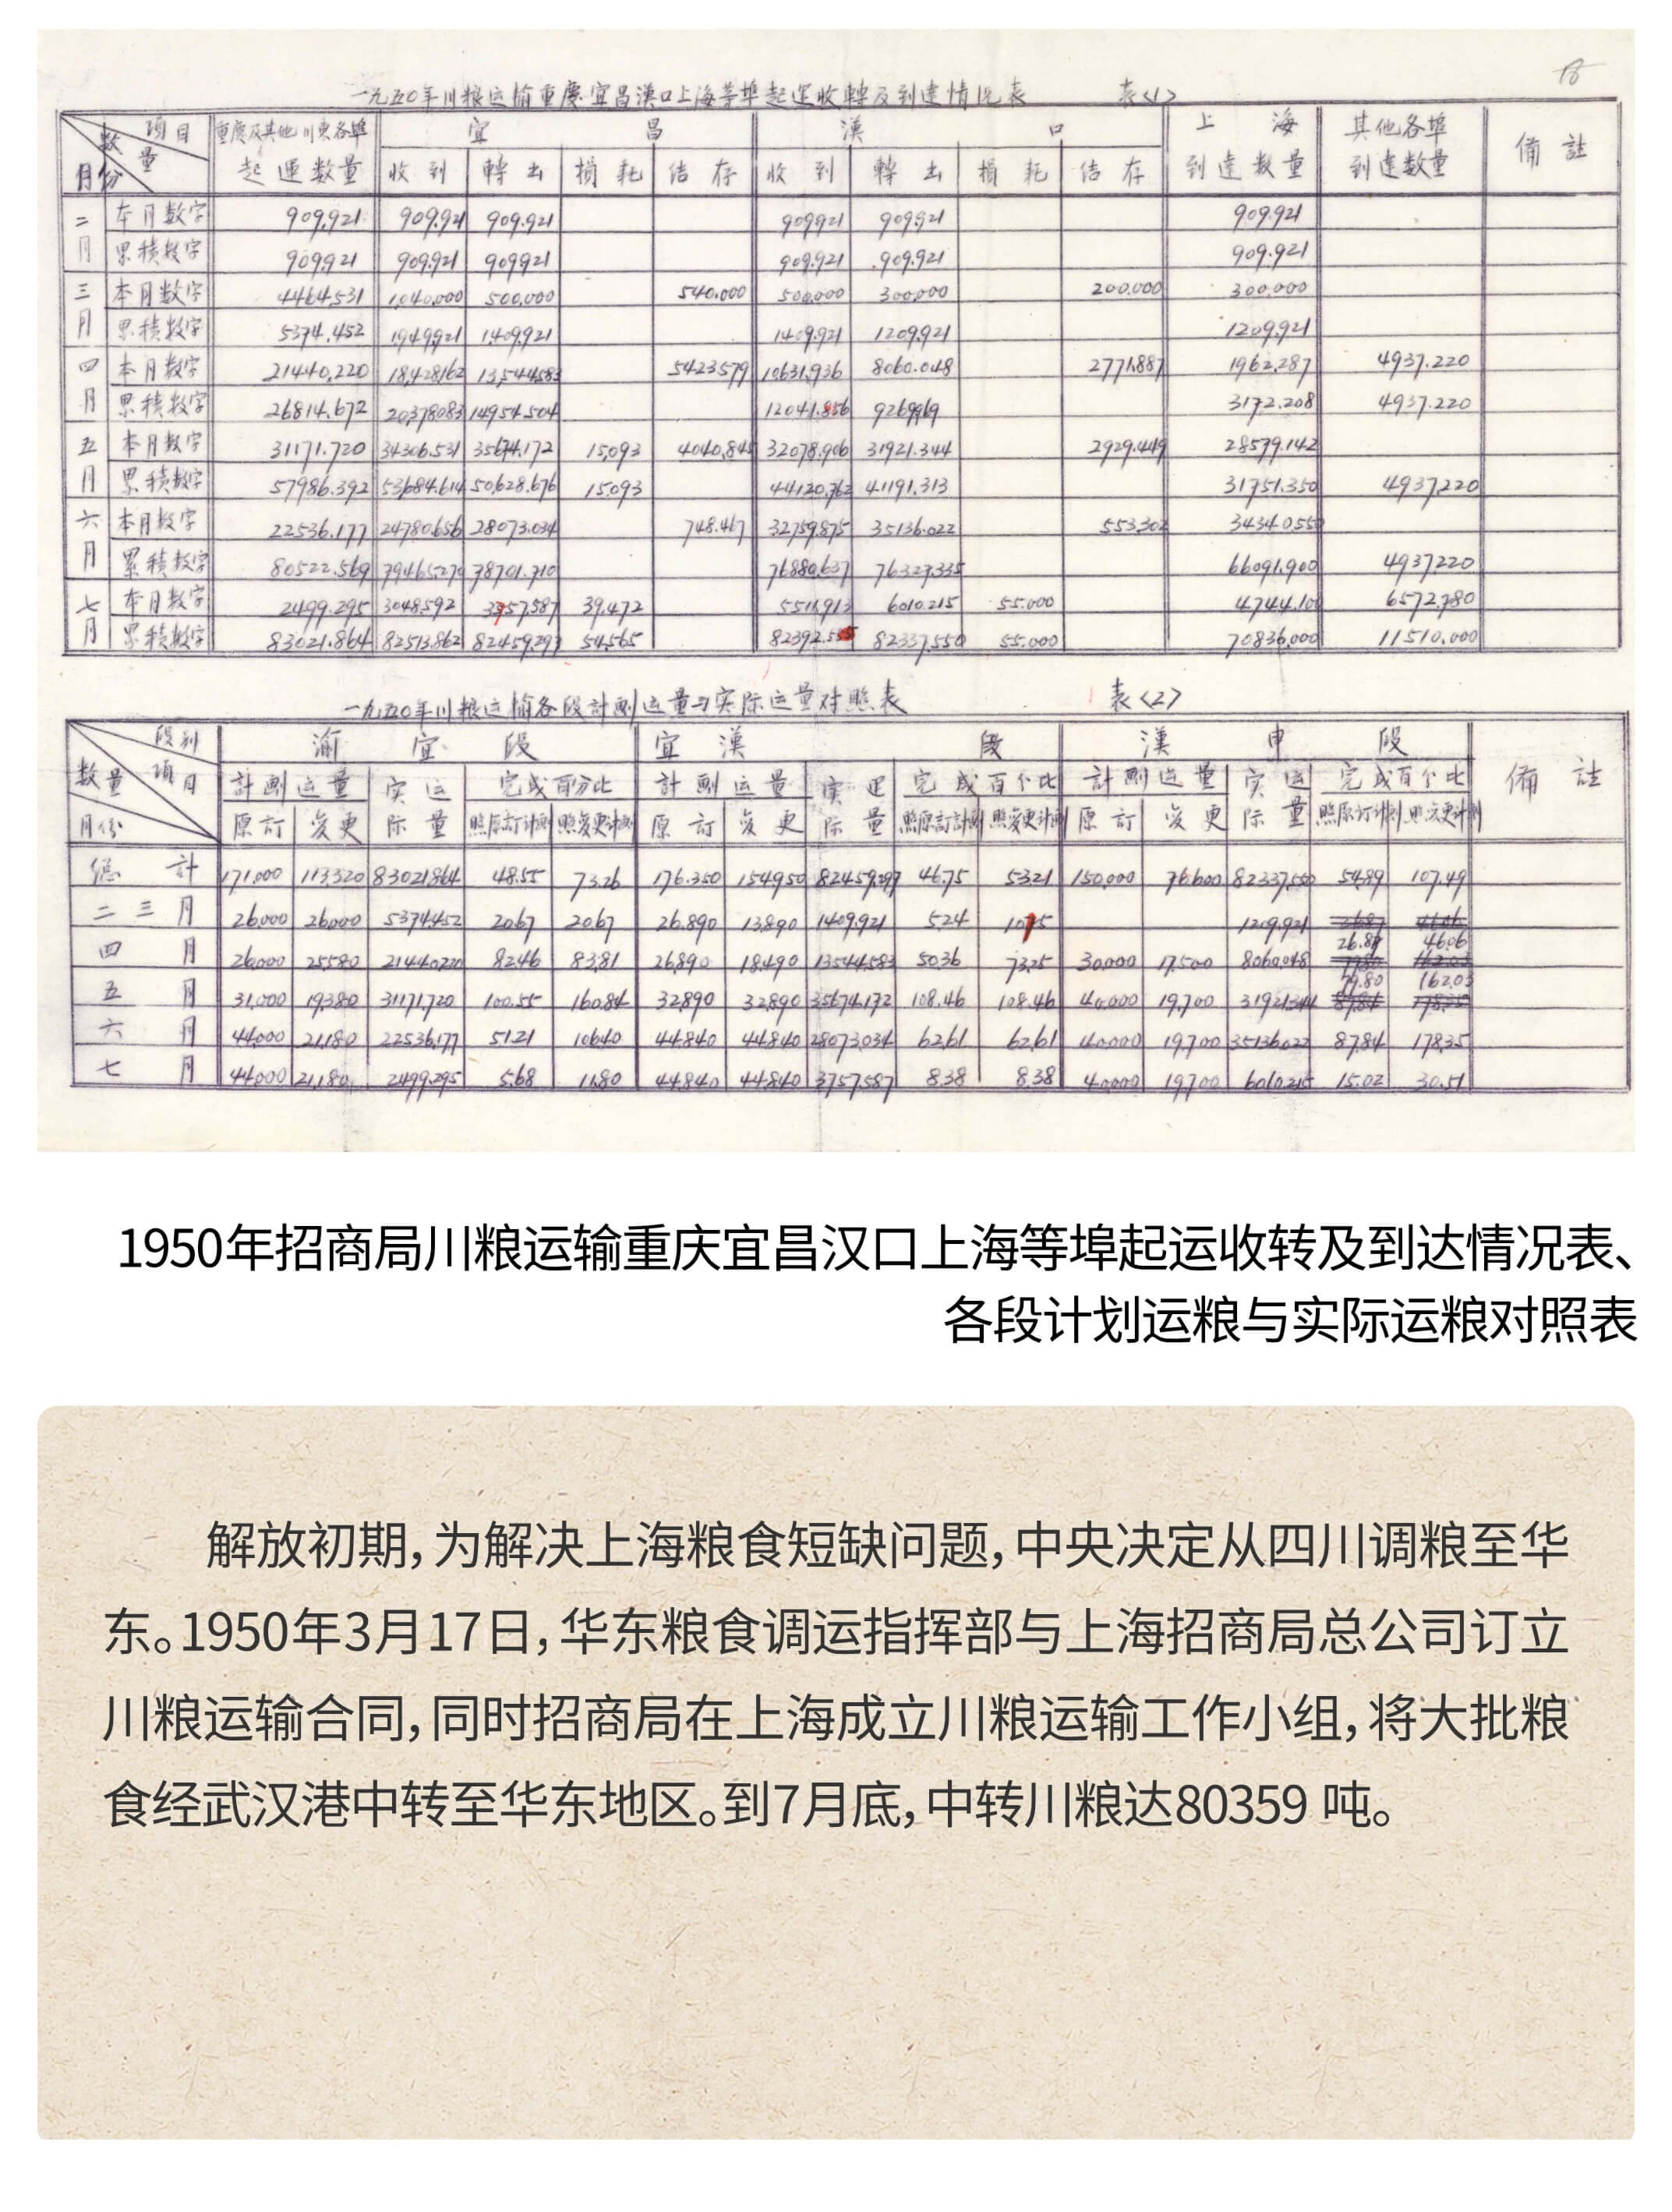 一九五0年川粮运输重慶宜昌漢口上海等埠起运收轉及到達情况表 表<1>
項目 数量 月份 重慶及其他川東各埠起運数量 宜昌 漢口 上海到達数量 其他各埠到達数量 備註
收到 轉出 損耗 结存 收到 轉出 損耗 结存
二月 本月数字 909,921 909.921 909.921 909921 909.921 909.921
累積数字 909921 909.921 909921 909.921 909.921 909.921
三月 本月数字 4464.531 1,040,000 500,000 540,000 500,000 300,000 200.000 300,000
累積数字 5374.452 1949921 1,409,921 1409.921 1209,921 1209,921
四月 本月数字 21440,220 18,428,162 13,544,583 5423579 10631,936 8060.048 2771,887 1962,287 4937.220
累積数字 26814.672 20,378083 14954.504 12041.856 9269969 3172.208 4937.220
五月 本月数字 31171.720 34306.531 35674.172 15,093 4040,845 32078.906 31921.344 2929.449 28579.142
累積数字 57986.392 53684.614 50,628.676 15,093 44120,762 41191.313 31751.350 4937,220
六月 本月数字 22536.177 24780.656 28073.034 748.467 32759.875 35136.022 553,302 34340.550
累積数字 80522.569 79465,270 78701.710 76880,637 76327.335 66091,900 4937220
七月 本月数字 2499.295 3048,592 3757,587 39,472 5511,912 6010.215 55.000 4744,100 6572,780
累積数字 83021.864 82513,862 82459,297 54,565 82392.555 82337,550 55.000 70836,000 11510.000
一九五0年川粮运输各段計劃运量与实际运量对照表 表<2>
段别 項目 数量 月份 渝宜段 宜漢段 漢申段 備註
計劃运量 实际运量 完成百分比 計劃运量 实际运量 完成百分比 計劃运量 实际运量 完成百分比
原訂 变更 照原訂計劃 照变更計劃 原訂 变更 照原訂計劃 照变更計劃 原訂 变更 照原訂計劃 照变更計劃
總計 171,000 113,320 83021864 48.55 73.26 176.350 154950 82459,297 46.75 5321 150,000 76,600 82337,550 54.89 107.49
二三月 26,000 26,000 5374.452 20.67 20.67 26.890 13,890 1409,921 5.24 10.15 1209,921
26.87 46.06
四月 26,000 25580 21440220 82.46 83.81 26,890 18,490 13544.583 50.36 73.25 30,000 17,500 8060,048
79.80 162.03
五月 31,000 19,380 31171,720 100.55 160.84 32,890 32,890 35674,172 108.46 108.46 40,000 19,700 31921344
六月 44,000 21,180 22536,177 51.21 106.40 44,840 44,840 28073,034 62.61 62.61 40,000 19,700 35136,022 87.84 178.35
七月 44,000 21,180 2499.295 5.68 11.80 44,840 44,840 3757,587 8.38 8.38 40,000 19,700 6010,215 15.02 30.51
1950年招商局川粮运输重庆宜昌汉口上海等埠起运收转及到达情况表、
各段计划运粮与实际运粮对照表
解放初期，为解决上海粮食短缺问题，中央决定从四川调粮至华
东。1950年3月17日，华东粮食调运指挥部与上海招商局总公司订立
川粮运输合同，同时招商局在上海成立川粮运输工作小组，将大批粮
食经武汉港中转至华东地区。到7月底，中转川粮达80359 吨。